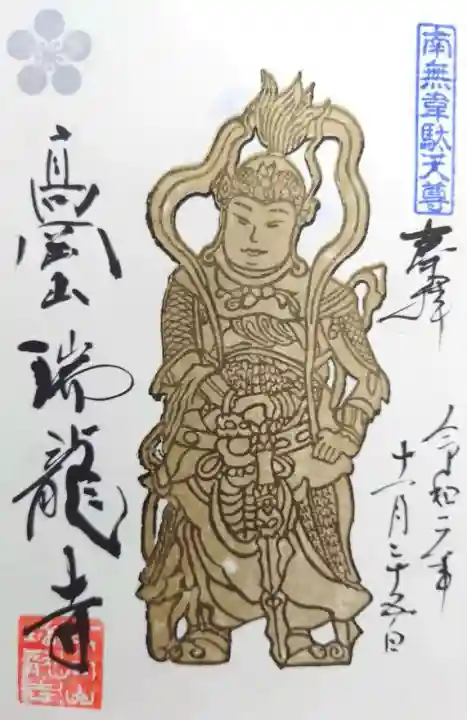 南無韋駄天尊
奉拝
令和二年
十一月二十五日
高岡山瑞龍寺